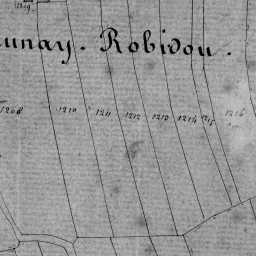 1209
unay . Robidou .
1208 1210 1211 1212 1213 1214 1215 1216